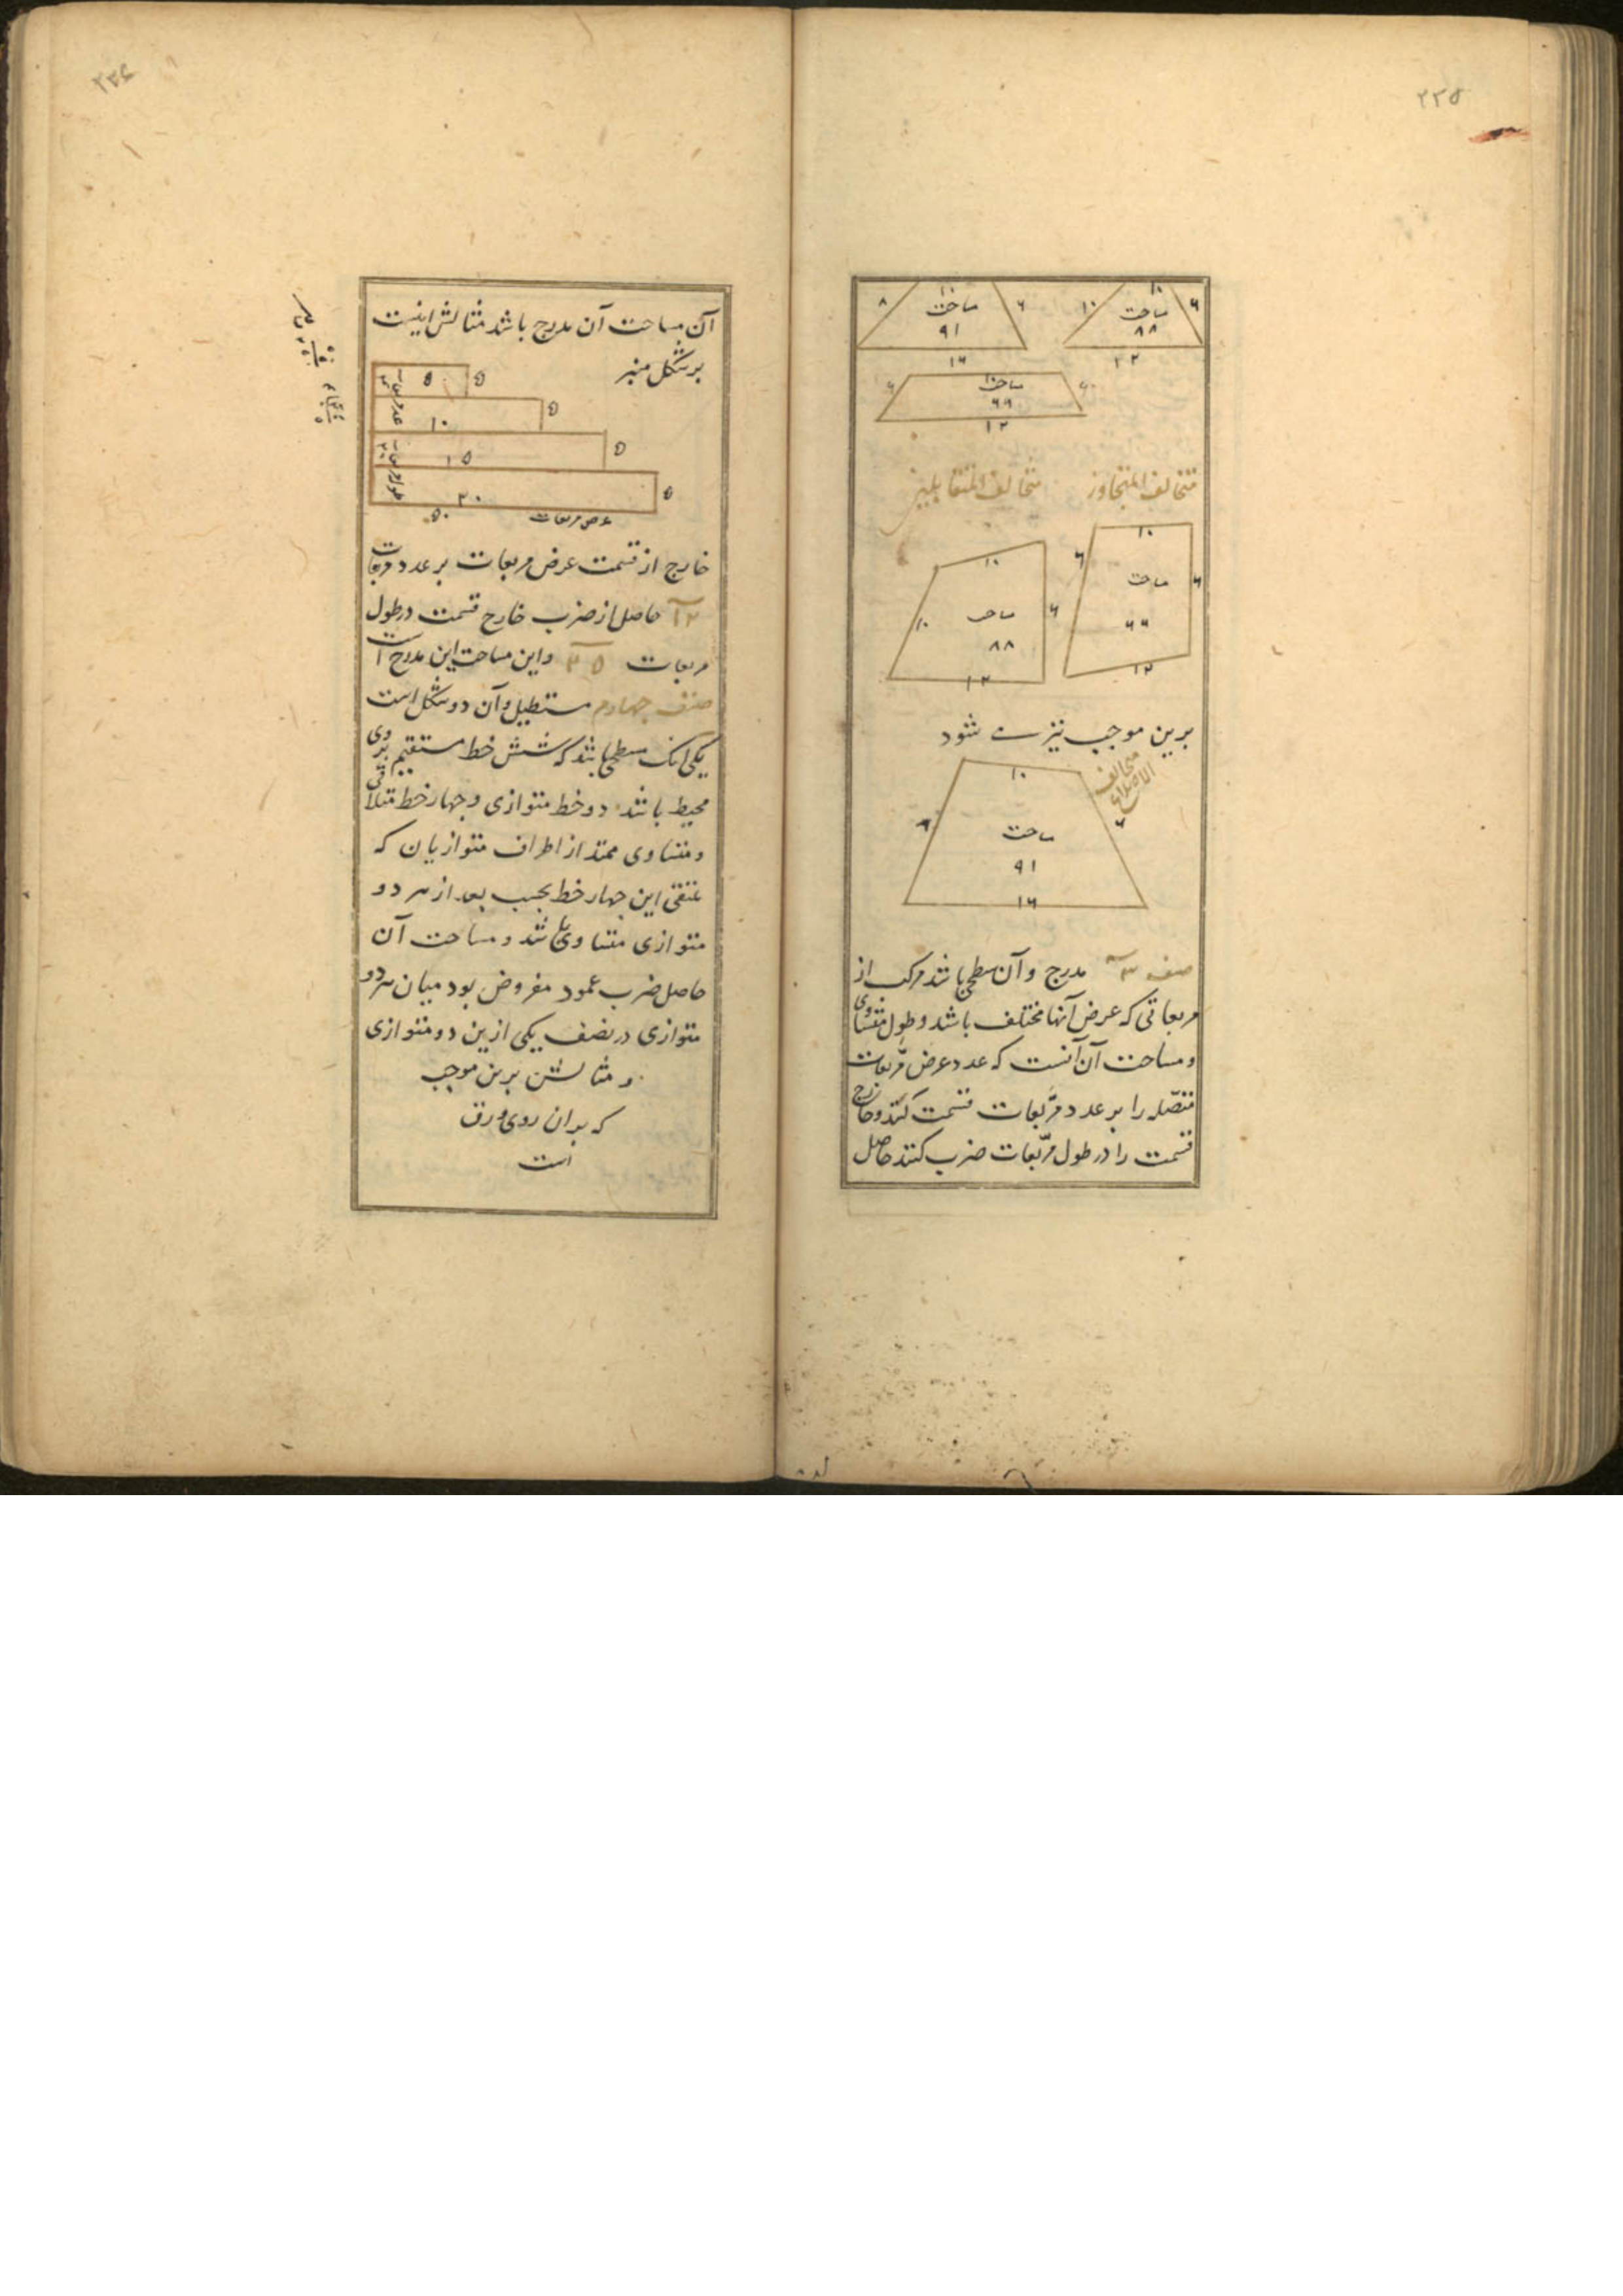 ۲۳۵
۱۰ ۱۰
۶ مساحت ۱۰ ۶ مساحت ۸
۸۸ ۹۱
۱۲ ۱۶
۱۰
۶ مساحت ۶
۶۶
۱۲
متخالف المتجاوز متخالف المتقابلین
۱۰ ۱۰
۶ مساحت ۶ ۶ مساحت ۱۰
۶۶ ۸۸
۱۲ ۱۲
برین موجب نیز مے شود
متخالف
الاضلاع
۱۰
۶ مساحت ۸
۹۱
۱۶
صنف ۳ مدرج و آن سطحی باشد مرکب از
مربعاتی که عرض آنها مختلف باشد و طول متساوی
و مساحت آن آنست که عدد عرض مربعات
متصله را بر عدد مربعات قسمت کنند و خارج
قسمت را در طول مربعات ضرب کنند حاصل
۲۳۶
آن مساحت آن مدرج باشد مثالش اینست
بر شکل منبر
۵ ۵
۱۰ ۵
۱۵ ۵
۲۰ ۵
عرض مربعات ۵۰
خارج از قسمت عرض مربعات بر عدد مربعات
۱۲ حاصل از ضرب خارج قسمت در طول
مربعات و این مساحت این مدرج است
صنف چهارم مستطیل و آن دو شکل است
یکی آنک سطحی باشد که شش خط مستقیم بروی
محیط باشد دو خط متوازی و چهار خط متلاقی
و متساوی ممتد از اطراف متوازیان که
ملتقی این چهار خط بحسب بعد از هر دو
متوازی متساوی باشد و مساحت آن
حاصل ضرب عمود مفروض بود میان هر دو
متوازی در نصف یکی ازین دو متوازی
و مثالش برین موجب
که بدان روی ورق
است